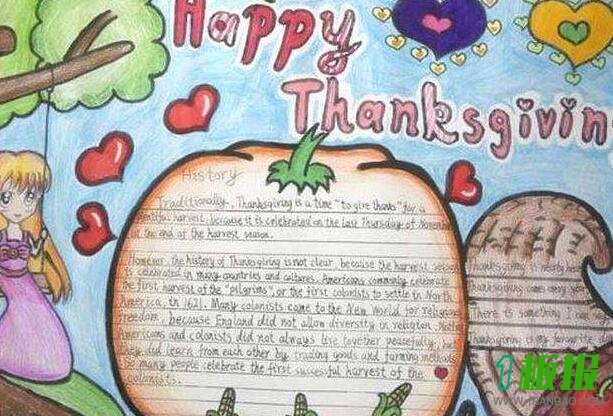 Happy
Thanksgiving
History
Traditionally, Thanksgiving is a time "to give thanks" for a
harvest, because it is celebrated on the last Thursday of November
at the end of the harvest season.
However, the history of Thanksgiving is not clear, because the harvest season
is celebrated in many countries and cultures. Americans commonly celebrate
the first harvest of the "pilgrims", or the first colonists to settle in North
America, in 1621. Many colonists came to the New World for religious
freedom, because England did not allow diversity in religion. Native
Americans and colonists did not always live together peacefully, but
they did learn from each other by trading goods and farming methods.
So many people celebrate the first successful harvest of the
colonists.
Thanksgiving is nearly here
Thanksgiving comes every year
There is something I can
Thanksgiving is my favourite
板报